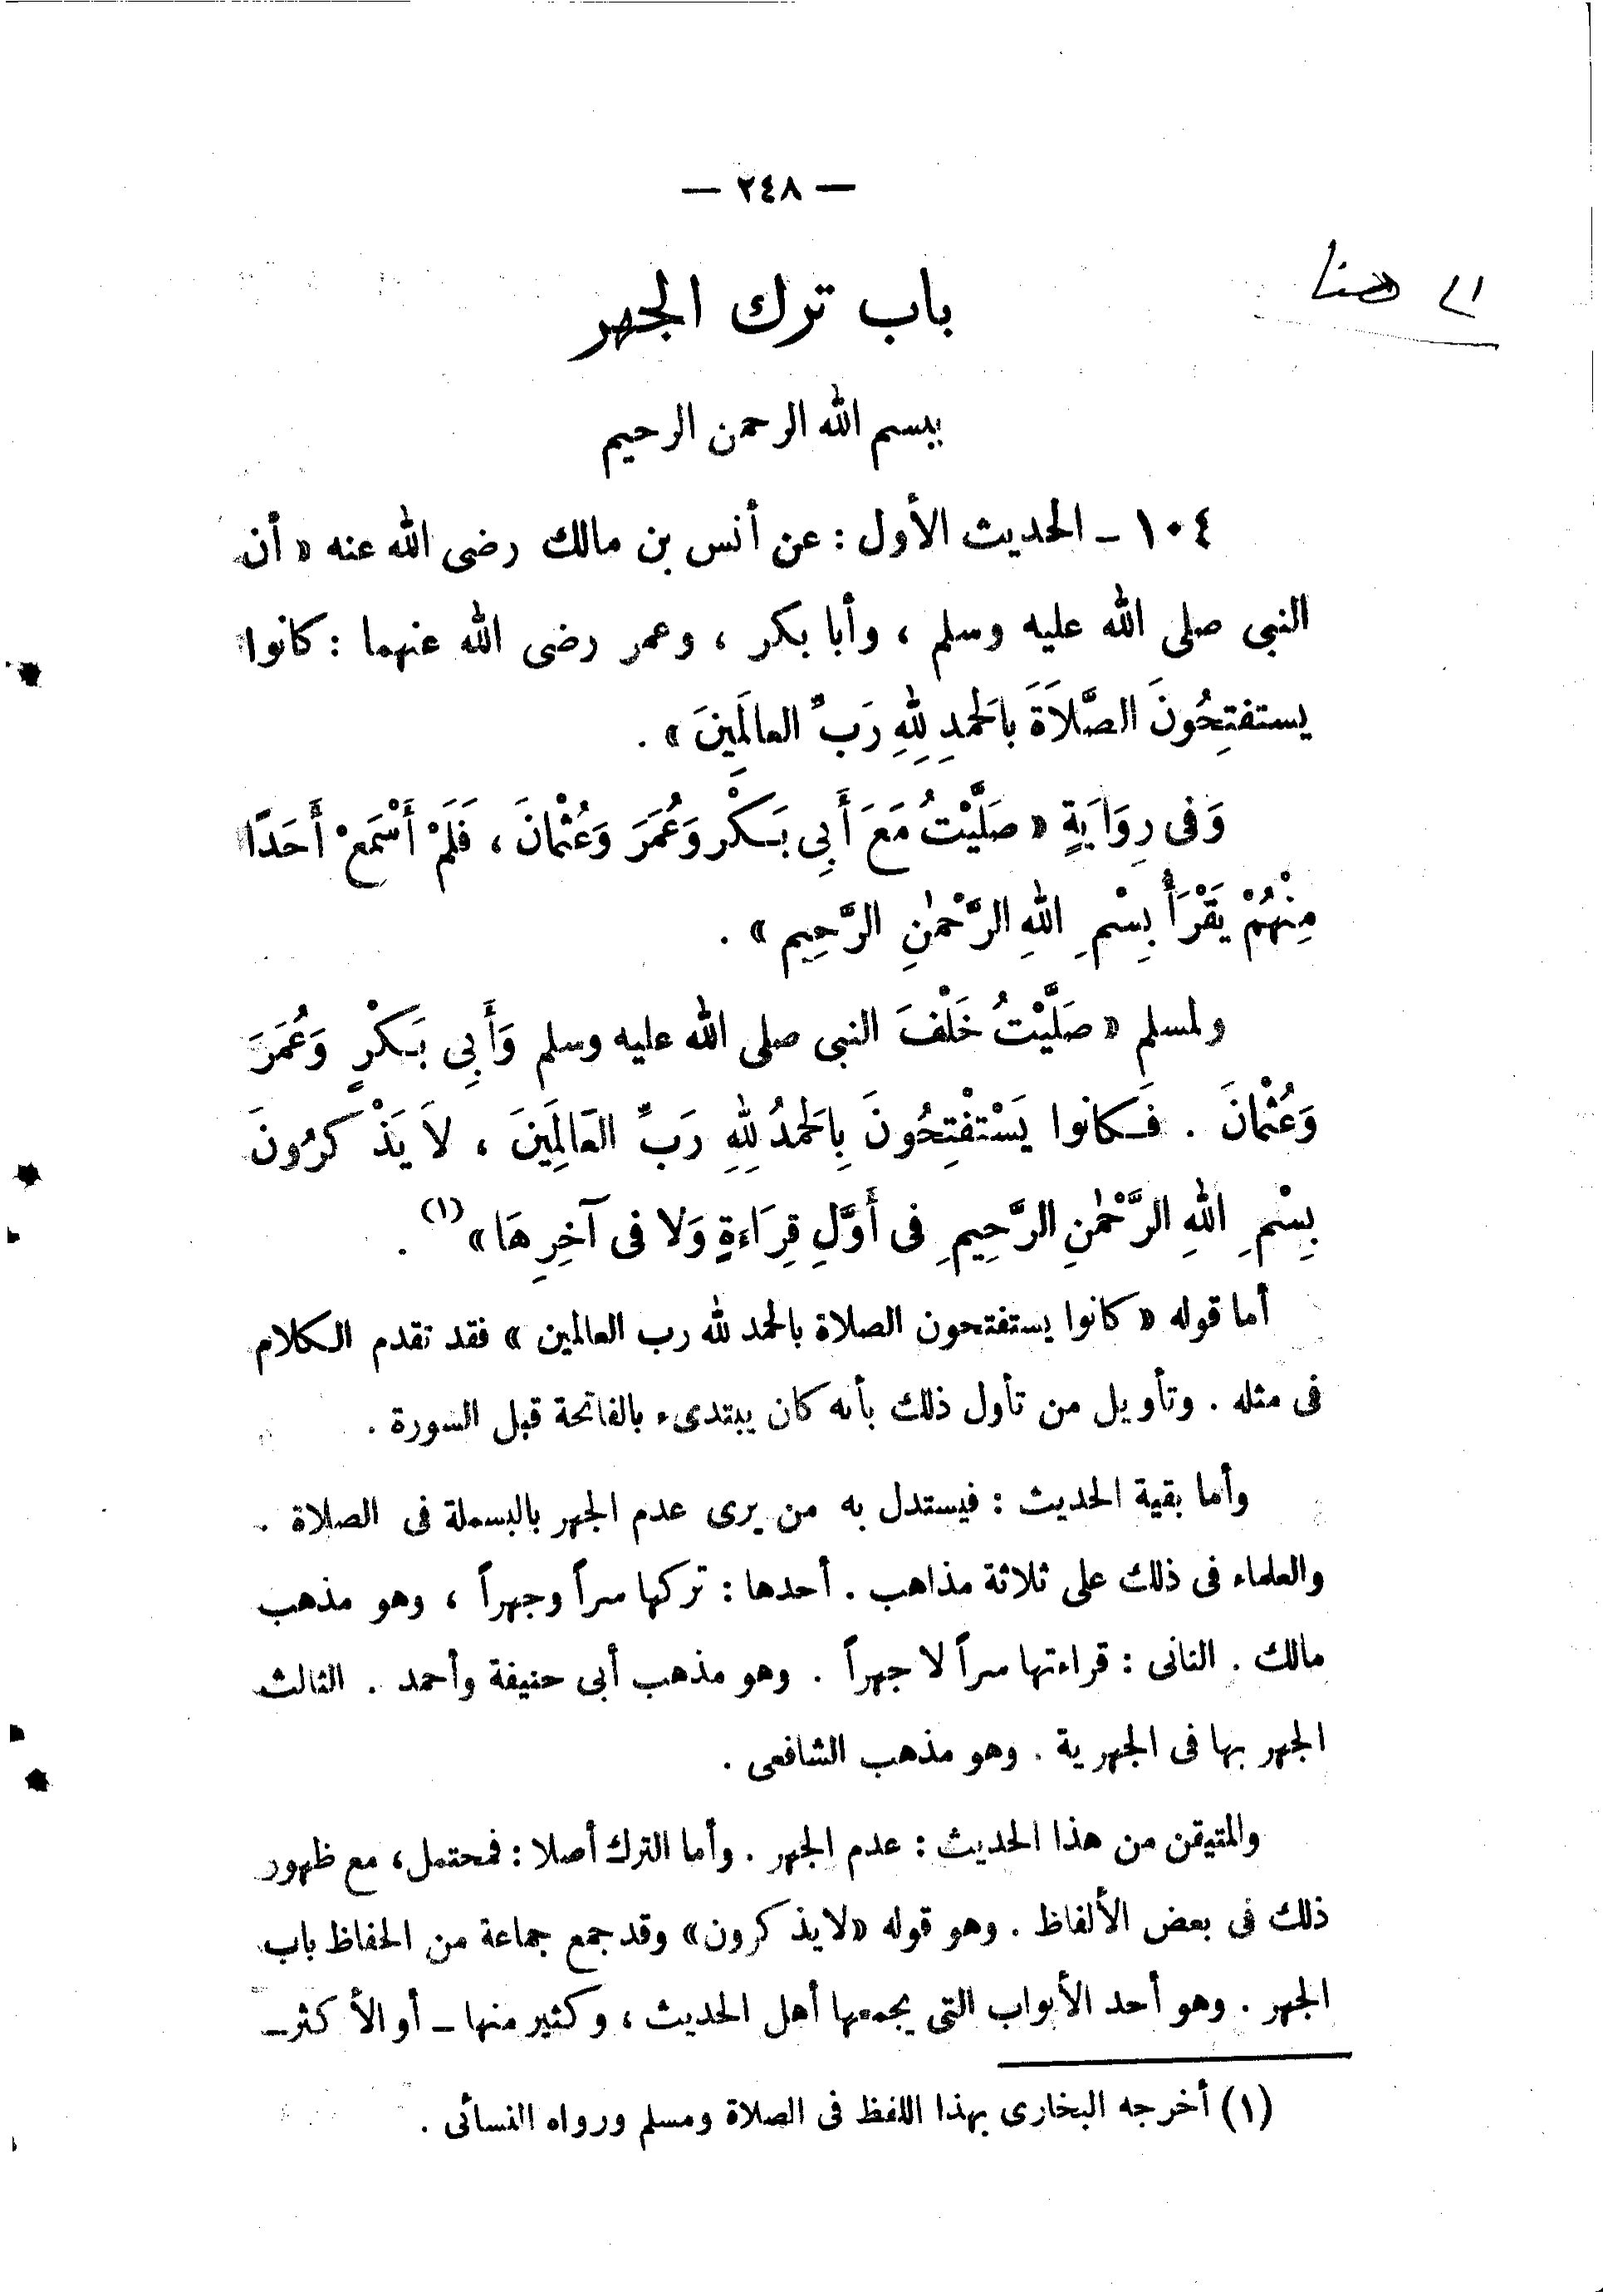 — ٢٤٨ —
الى هنا
باب ترك الجهر
ببسم الله الرحمن الرحيم
١٠٤ – الحديث الأول : عن أنس بن مالك رضى الله عنه « أن
النبى صلى الله عليه وسلم ، وأبا بكر ، وعمر رضى الله عنهما : كانوا
يستفتِحُونَ الصَّلاَةَ بالَحمدِ لِلهِ رَبِّ العالَمِينَ » .
وَفى رِوَايَةٍ « صَلَّيْتُ مَعَ أَبِى بَكْر وَعُمَرَ وَعُثْمانَ ، فَلَمْ أَسْمَعْ أَحَدًا
مِنْهُمْ يَقْرَأُ بِسْمِ اللهِ الرَّحْمٰنِ الرَّحِيمِ » .
ولمسلم « صَلَّيْتُ خَلْفَ النبى صلى الله عليه وسلم وَأَبِى بَكْرٍ وَعُمَرَ
وَعُثْمانَ . فَكانوا يَسْتَفْتِحُونَ بِالَحمدُ لِلهِ رَبِّ العَالَمِينَ ، لاَ يَذْكرُونَ
بِسْمِ اللهِ الرَّحْمٰنِ الرَّحِيمِ فى أَوَّلِ قِرَاءةٍ وَلا فى آخِرِهَا » (١) .
أما قوله « كانوا يستفتحون الصلاة بالحمد لله رب العالمين » فقد تقدم الكلام
فى مثله . وتأويل من تأول ذلك بأنه كان يبتدىء بالفاتحة قبل السورة .
وأما بقية الحديث : فيستدل به من يرى عدم الجهر بالبسملة فى الصلاة .
والعلماء فى ذلك على ثلاثة مذاهب . أحدها : تركها سراً وجهراً ، وهو مذهب
مالك . الثانى : قراءتها سراً لا جهراً . وهو مذهب أبى حنيفة وأحمد . الثالث
الجهر بها فى الجهرية . وهو مذهب الشافعى .
والمتيقن من هذا الحديث : عدم الجهر . وأما الترك أصلا : فمحتمل ، مع ظهور
ذلك فى بعض الألفاظ . وهو قوله « لايذكرون » وقد جمع جماعة من الحفاظ باب
الجهر . وهو أحد الأبواب التى يجمعها أهل الحديث ، وكثير منها – أو الأكثر –
(١) أخرجه البخارى بهذا اللفظ فى الصلاة ومسلم ورواه النسائى .